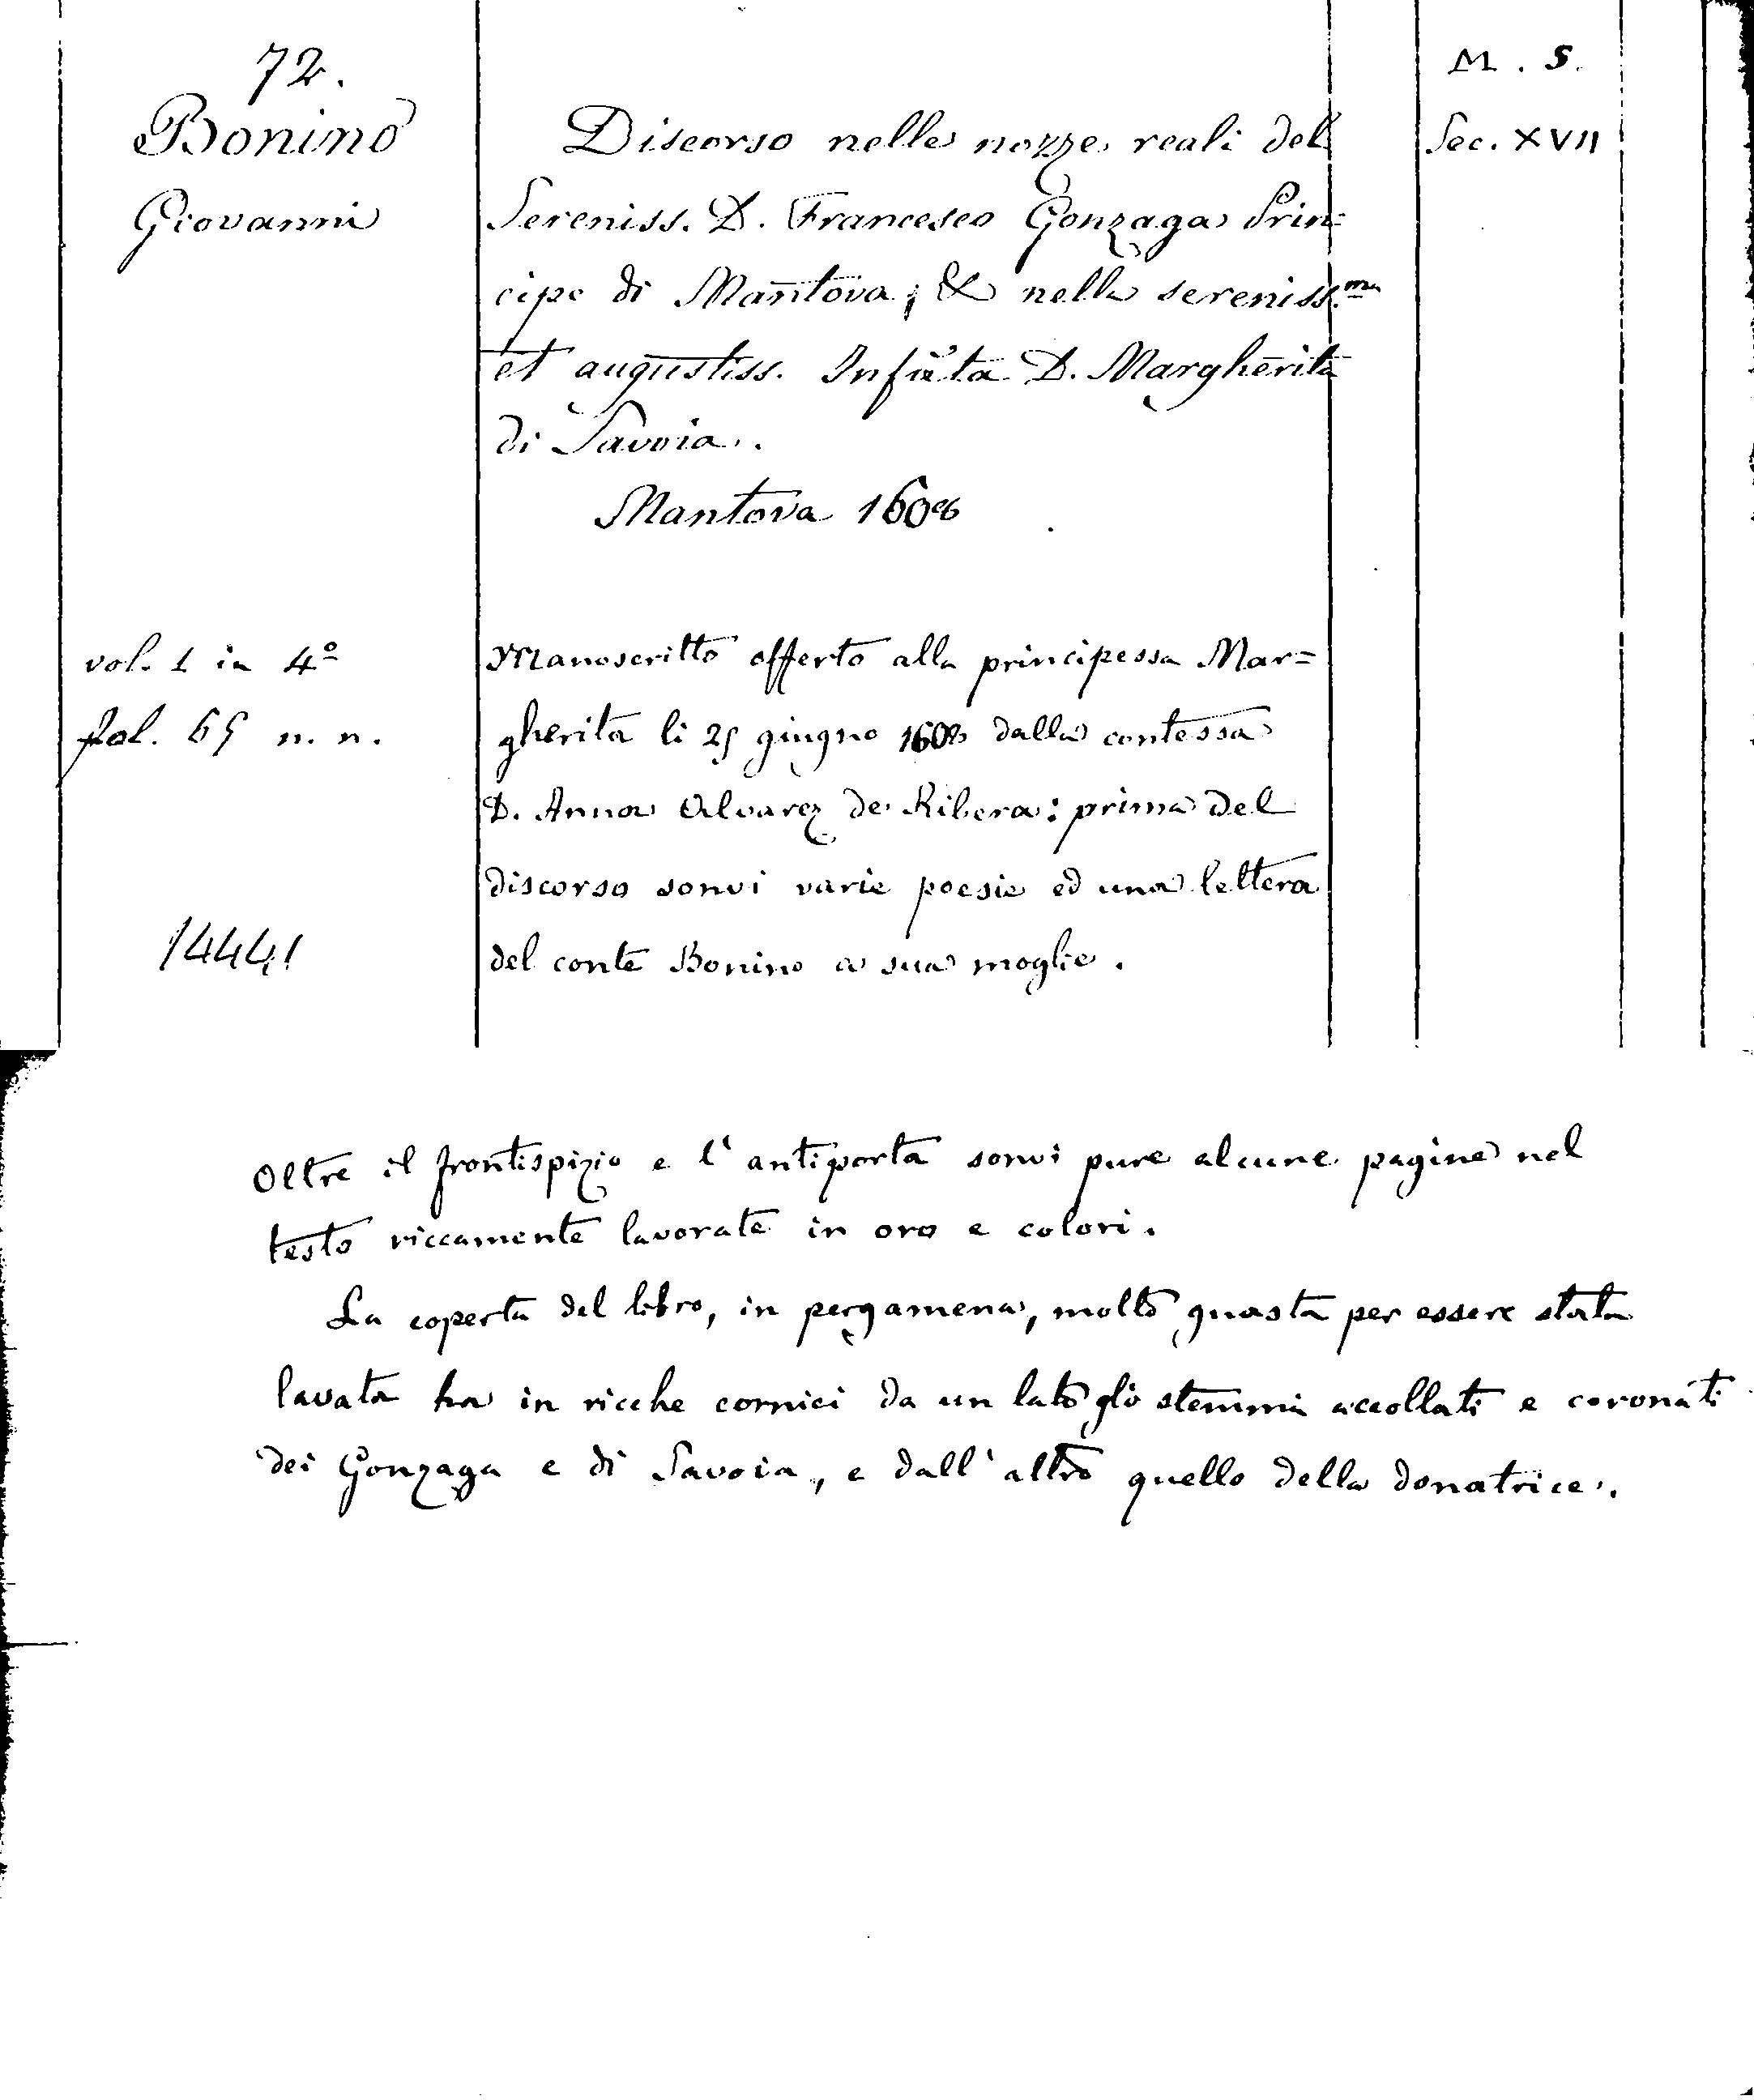 72.
Bonino
Giovanni
M. S.
Sec. XVII
Discorso nelle nozze reali del
Sereniss. D. Francesco Gonzaga Prin=
cipe di Mantova; & nella sereniss.ma
et augustiss. Infāta D. Margherita
di Savoia.
Mantova 1608
vol. 1 in 4º
fol. 65 n. n.
14441
Manoscritto offerto alla principessa Mar=
gherita li 25 giugno 1608 dalla contessa
D. Anna Alvarez de Ribera: prima del
discorso sonvi varie poesie ed una lettera
del conte Bonino a sua moglie.
Oltre il frontispizio e l'antiporta sonvi pure alcune pagine nel
testo riccamente lavorate in oro e colori.
La coperta del libro, in pergamena, molto guasta per essere stata
lavata ha in ricche cornici da un lato gli stemmi accollati e coronati
dei Gonzaga e di Savoia, e dall'altro quello della donatrice.